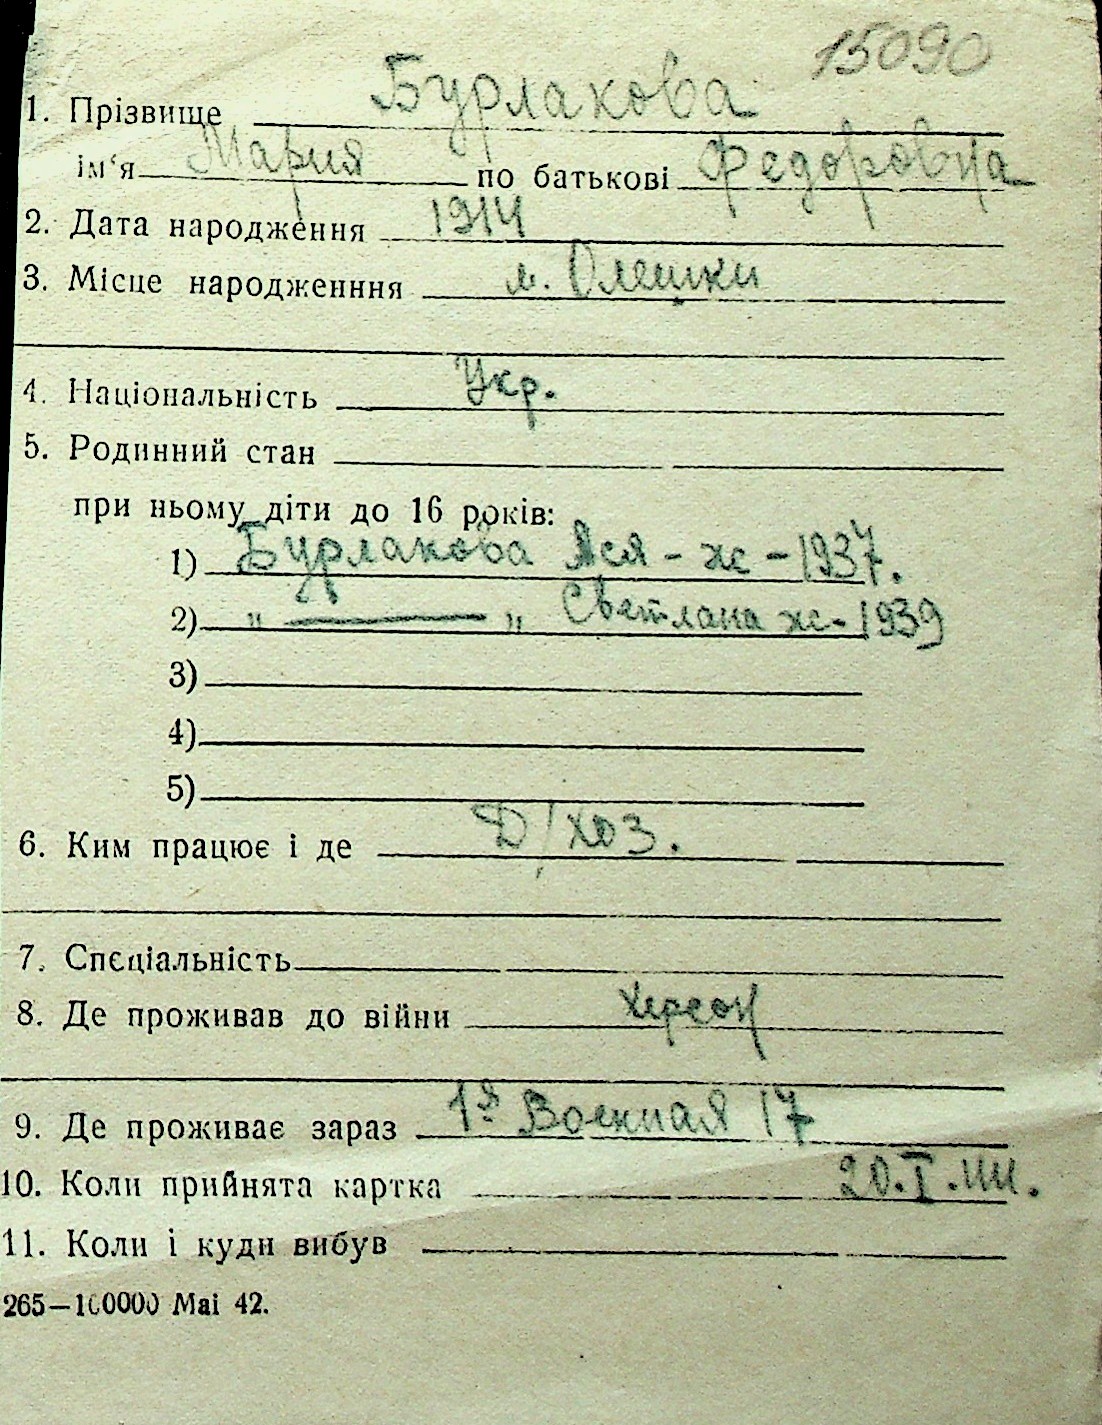 15090
1. Прізвище Бурлакова
ім'я Мария по батькові Федоровна
2. Дата народження 1914
3. Місце народженння м. Олешки
4. Національність Укр.
5. Родинний стан
при ньому діти до 16 років:
1) Бурлакова Ася - ж - 1937.
2) " — " Светлана ж - 1939
3)
4)
5)
6. Ким працює і де Д/хоз.
7. Спеціальність
8. Де проживав до війни Херсон
9. Де проживає зараз 1я Военная 17
10. Коли прийнята картка 20.I.44.
11. Коли і куди вибув
265—100000 Mai 42.